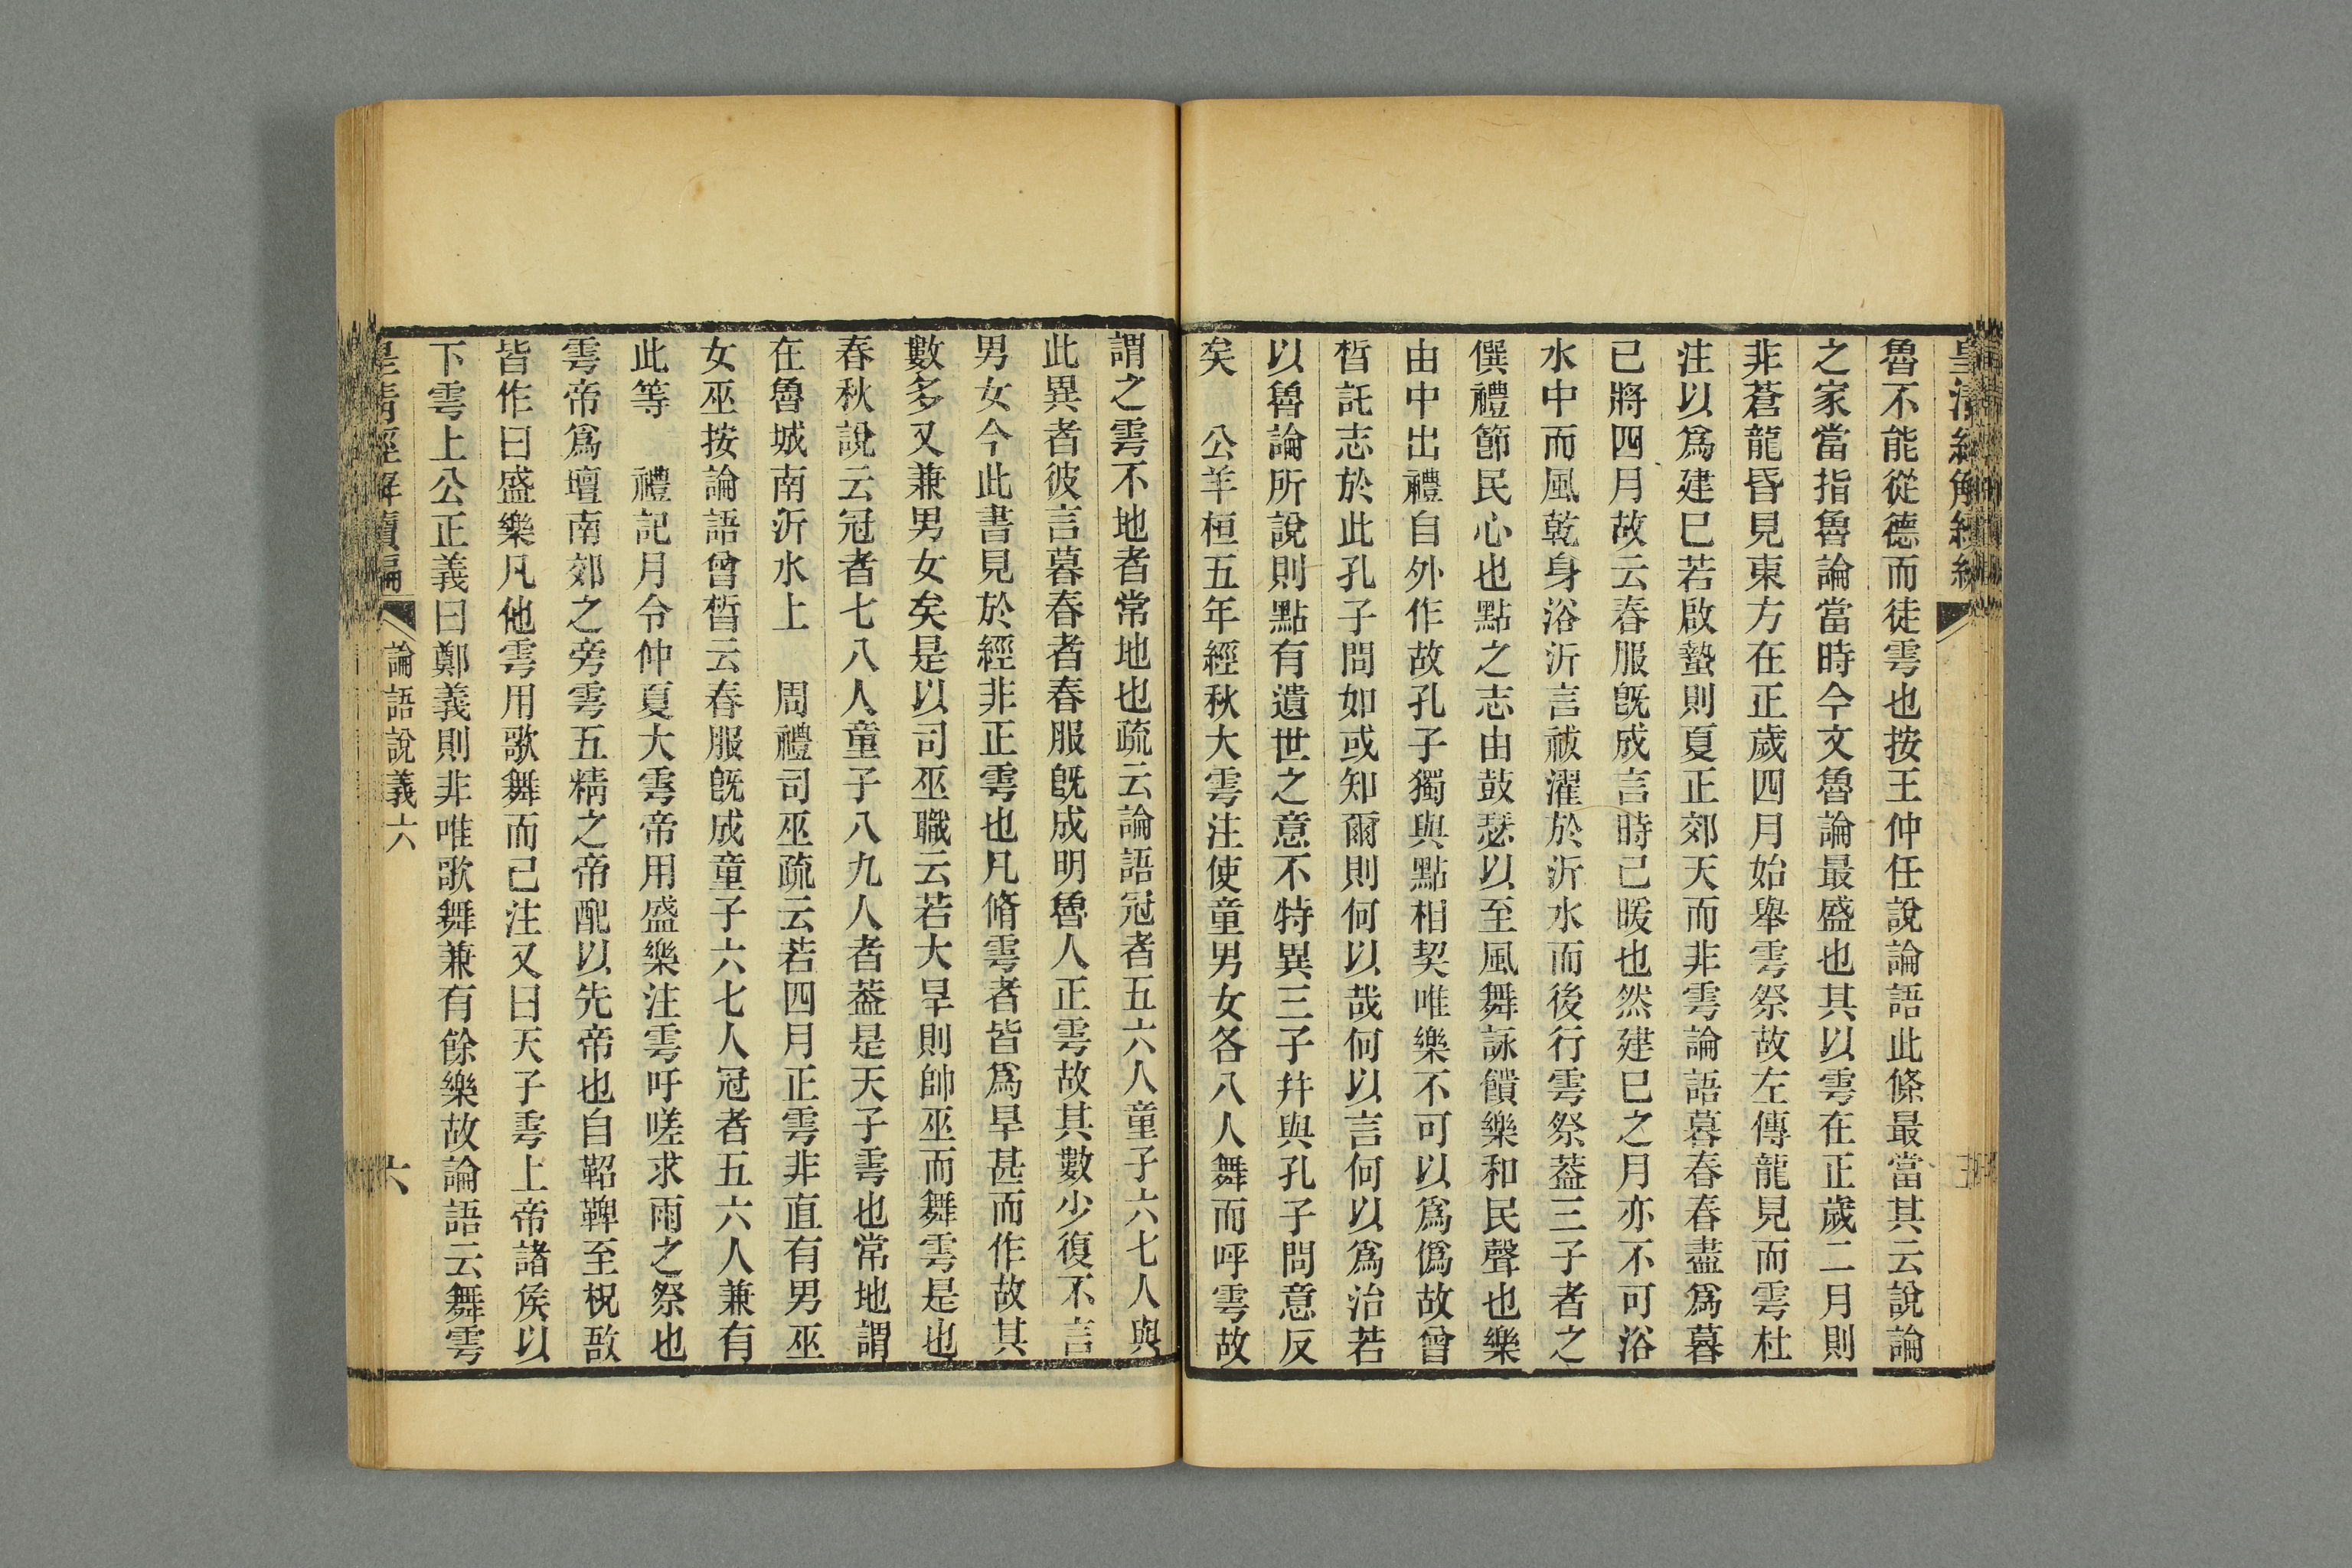 魯不能從德而徒雩也按王仲任說論語此條最當其云說論
之家當指魯論當時今文魯論最盛也其以雩在正歲二月則
非蒼龍昏見東方在正歲四月始舉雩祭故左傳龍見而雩杜
注以爲建巳若啟蟄則夏正郊天而非雩論語暮春春盡爲暮
已將四月故云春服旣成言時已暖也然建巳之月亦不可浴
水中而風乾身浴沂言祓濯於沂水而後行雩祭葢三子者之
僎禮節民心也點之志由鼓瑟以至風舞詠饋樂和民聲也樂
由中出禮自外作故孔子獨與點相契唯樂不可以爲僞故曾
晳託志於此孔子問如或知爾則何以哉何以言何以爲治若
以魯論所說則點有遺世之意不特異三子幷與孔子問意反
矣　公羊桓五年經秋大雩注使童男女各八人舞而呼雩故
謂之雩不地者常地也疏云論語冠者五六人童子六七人與
此異者彼言暮春者春服旣成明魯人正雩故其數少復不言
男女今此書見於經非正雩也凡脩雩者皆爲旱甚而作故其
數多又兼男女矣是以司巫職云若大旱則帥巫而舞雩是也
春秋說云冠者七八人童子八九人者葢是天子雩也常地謂
在魯城南沂水上　周禮司巫疏云若四月正雩非直有男巫
女巫按論語曾晳云春服旣成童子六七人冠者五六人兼有
此等　禮記月令仲夏大雩帝用盛樂注雩吁嗟求雨之祭也
雩帝爲壇南郊之旁雩五精之帝配以先帝也自鞀鞞至柷敔
皆作曰盛樂凡他雩用歌舞而已注又曰天子雩上帝諸侯以
下雩上公正義曰鄭義則非唯歌舞兼有餘樂故論語云舞雩
皇清經解續編
論語說義六
六